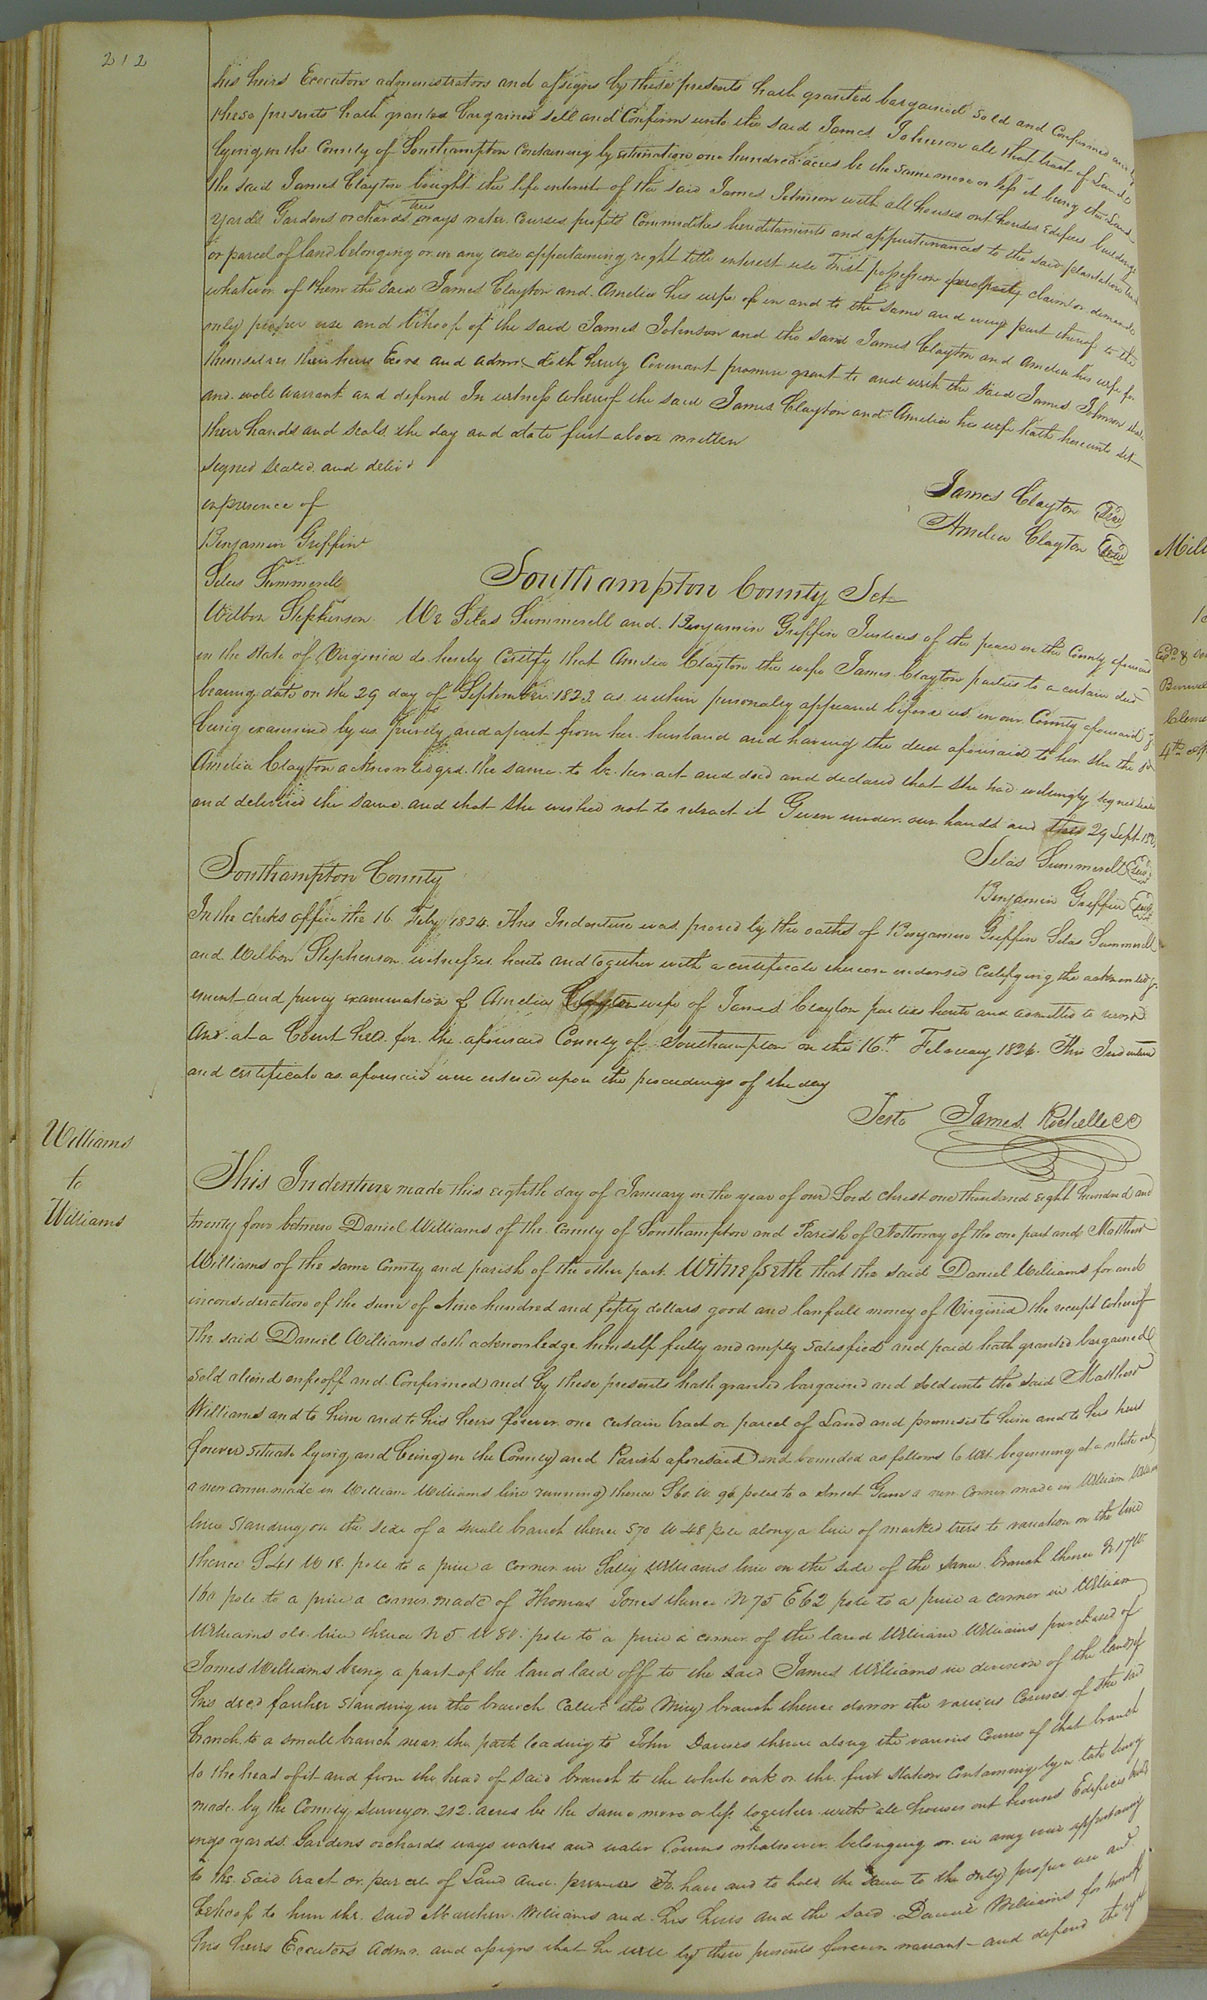 212
his heirs Executors administrators and assigns by these presents hath granted bargained sold and Confirmed and by
these presents hath granted bargained sell and Confirm unto the said James Johnson all that tract of Land
lying in the County of Southampton Containing by estimation one hundred acres be the same more or less it being the Land
the said James Clayton bought the life interest of the said James Johnson with all houses out houses Edifices buildings
yards Gardens orchards trees ways water courses profits Commodities hereditaments and appurtenances to the said plantation tract
or parcel of land belonging or in any wise appertaining right title interest use trust possession property claim or demand
whatever of them the said James Clayton and Amelia his wife of in and to the same and every part thereof to the
only proper use and behoof of the said James Johnson and the said James Clayton and Amelia his wife for
themselves their heirs Exors and admrs doth hereby Covenant promise grant to and with the said James Johnson shall
and will warrant and defend In witness whereof the said James Clayton and Amelia his wife hath hereunto set
their hands and seals the day and date first above written
signed sealed and deliv'd
in presence of
James Clayton Seal
Benjamin Griffin
Amelia Clayton Seal
Silas Summerell
Southampton County Sct
Wilbon Stephenson We Silas Summerell and Benjamin Griffin Justices of the peace in the County aforesaid
in the State of Virginia do hereby Certify that Amelia Clayton the wife James Clayton parties to a certain deed
bearing date on the 29 day of September 1823 as within personally appeared before us in our County aforesaid
being examined by us privily and apart from her husband and having the deed aforesaid to her she the sd
Amelia Clayton acknowledged the same to be her act and deed and declared that she had willingly signed sealed
and delivered the same and that she wished not to retract it Given under our hands and this 29 Sept
Silas Summerell Seal
Southampton County
Benjamin Griffin Seal
In the clerks office the 16 Feby 1824 This Indenture was proved by the oaths of Benjamin Griffin Silas Summerell
and Wilbon Stephenson witnesses hereto and together with a certificate thereon indorsed Certifying the acknowledg
ment and privy examination of Amelia Clayton wife of James Clayton parties hereto and admitted to record
And at a Court held for the aforesaid County of Southampton on the 16th February 1824 This Indenture
and certificate as aforesaid were entered upon the proceedings of the day
Teste James Rochelle CC
Williams
to
Williams
This Indenture made this eighth day of January in the year of our Lord Christ one thousand eight hundred and
twenty four between Daniel Williams of the County of Southampton and Parish of Nottoway of the one part and Matthew
Williams of the same County and parish of the other part Witnesseth that the said Daniel Williams for and
inconsideration of the sum of Nine hundred and fifty dollars good and lawfull money of Virginia the receipt whereof
The said Daniel Williams doth acknowledge himself fully and amply satisfied and paid hath granted bargained
sold aliend enfeoff and Confirmed and by these presents hath granted bargained and sold unto the said Matthew
Williams and to him and to his heirs forever one certain tract or parcel of Land and premises to him and to his heirs
forever situate lying and being in the County and Parish aforesaid and bounded as follows to wit beginning at a white oak
a new corner made in William Williams line running thence S60 W 90 poles to a sweet Gum a new corner made in William Williams
line standing on the side of a small branch thence S70 W 48 pole along a line of marked trees to variation on the line
thence S41 W 18 pole to a pine a corner in Sally Williams line on the side of the same branch thence N17W
160 pole to a pine a corner made of Thomas Jones thence N75 E62 pole to a pine a corner in William
Williams old line thence N5 W 80 pole to a pine a corner of the land William Williams purchased of
James Williams being a part of the land laid off to the said James Williams in division of the land of
his decd father standing in the branch called the Miry branch thence down the various Courses of the said
branch to a small branch near the path leading to John Davises thence along the various Courses of that branch
to the head of it and from the head of said branch to the white oak or the first station Containing by a late survey
made by the County Surveyor 212 acres be the same more or less together with all houses out houses Edifices build
ings yards Gardens orchards ways waters and water Courses whatsoever belonging or in any wise appertaining
to the said tract or parcel of Land and premises To have and to hold the same to the only proper use and
behoof to him the said Matthew Williams and his heirs and the said Daniel Williams for himself
his heirs Executors Admrs and assigns that he will by these presents forever warrant and defend the right